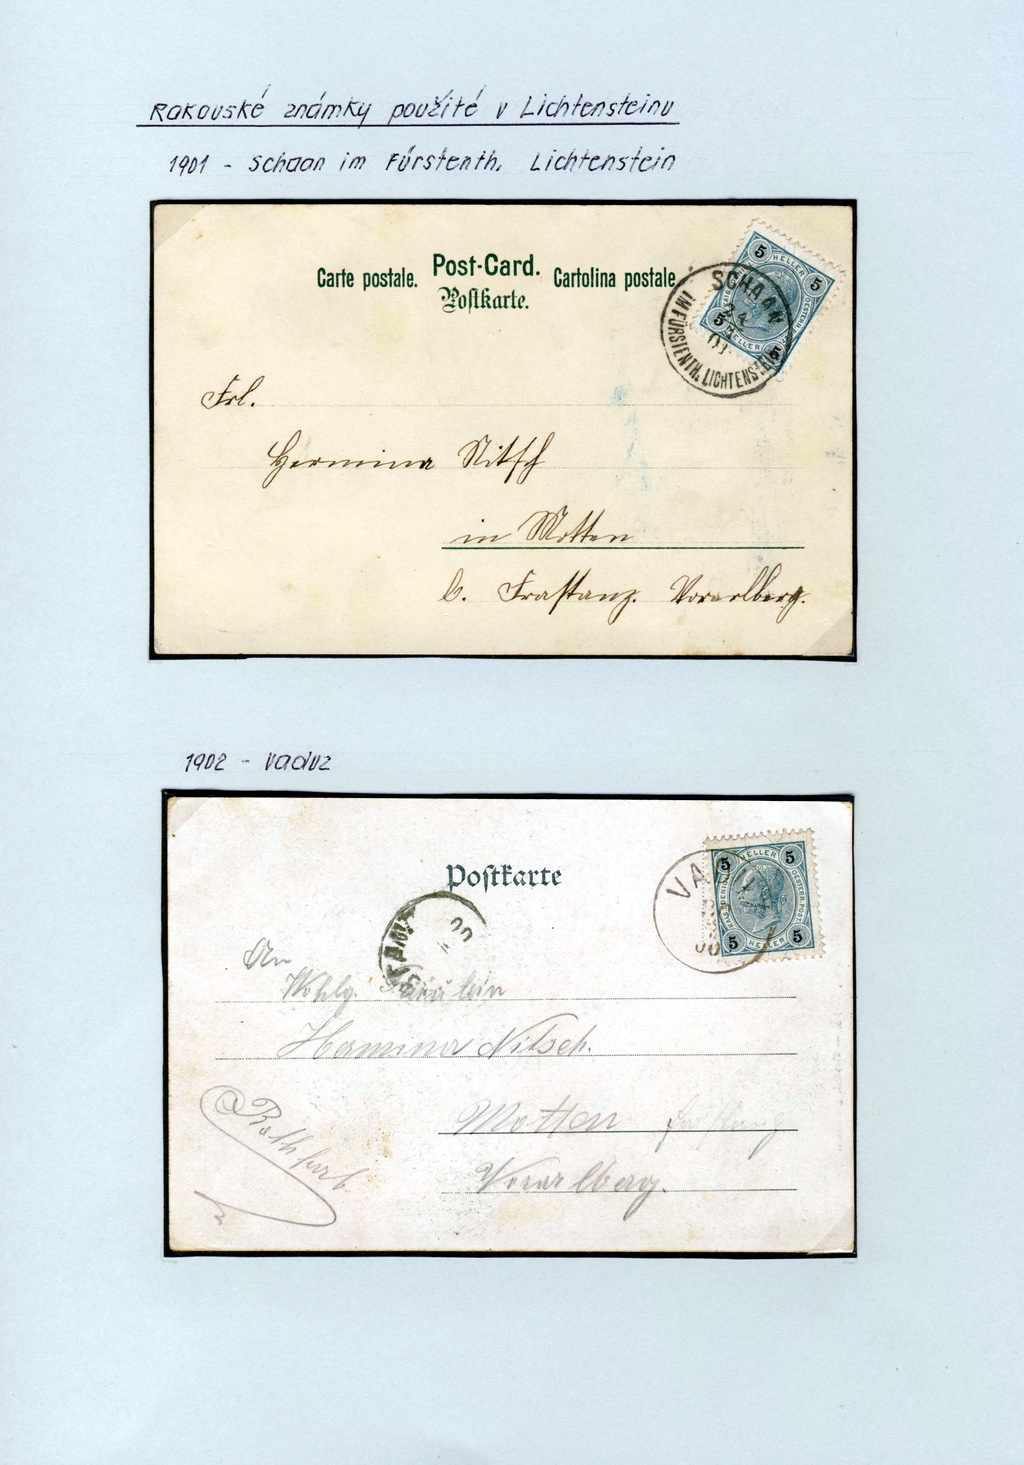 Rakouské známky použité v Lichtensteinu
1901 - Schaan im Fürstenth. Lichtenstein
Carte postale. Post-Card. Cartolina postale
Postkarte.
5 HELLER 5
5 HELLER 5
SCHAAN
24
01
IM FÜRSTENTH. LICHTENSTEIN
Frl.
Hermina Nitsch
in Motten
b. Frastanz. Vorarlberg.
1902 - Vaduz
Postkarte
VAD
5 HELLER 5
5 HELLER 5
An
Wohlg. Fräulein
Hermina Nitsch.
Motten Frastanz
Vorarlberg.